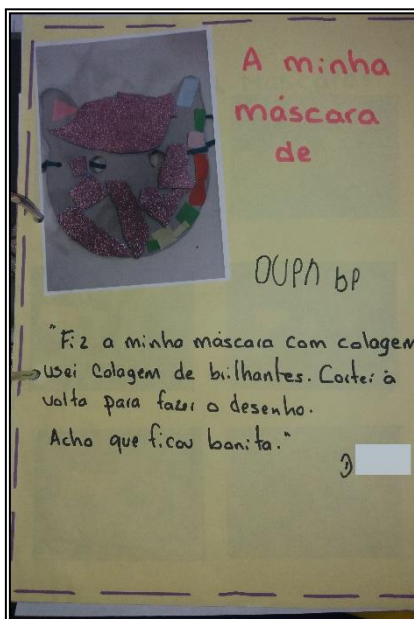 A minha
máscara
de
OUPA bP
"Fiz a minha máscara com colagem
usei colagem de brilhantes. Cortei à
volta para fazer o desenho.
Acho que ficou bonita."